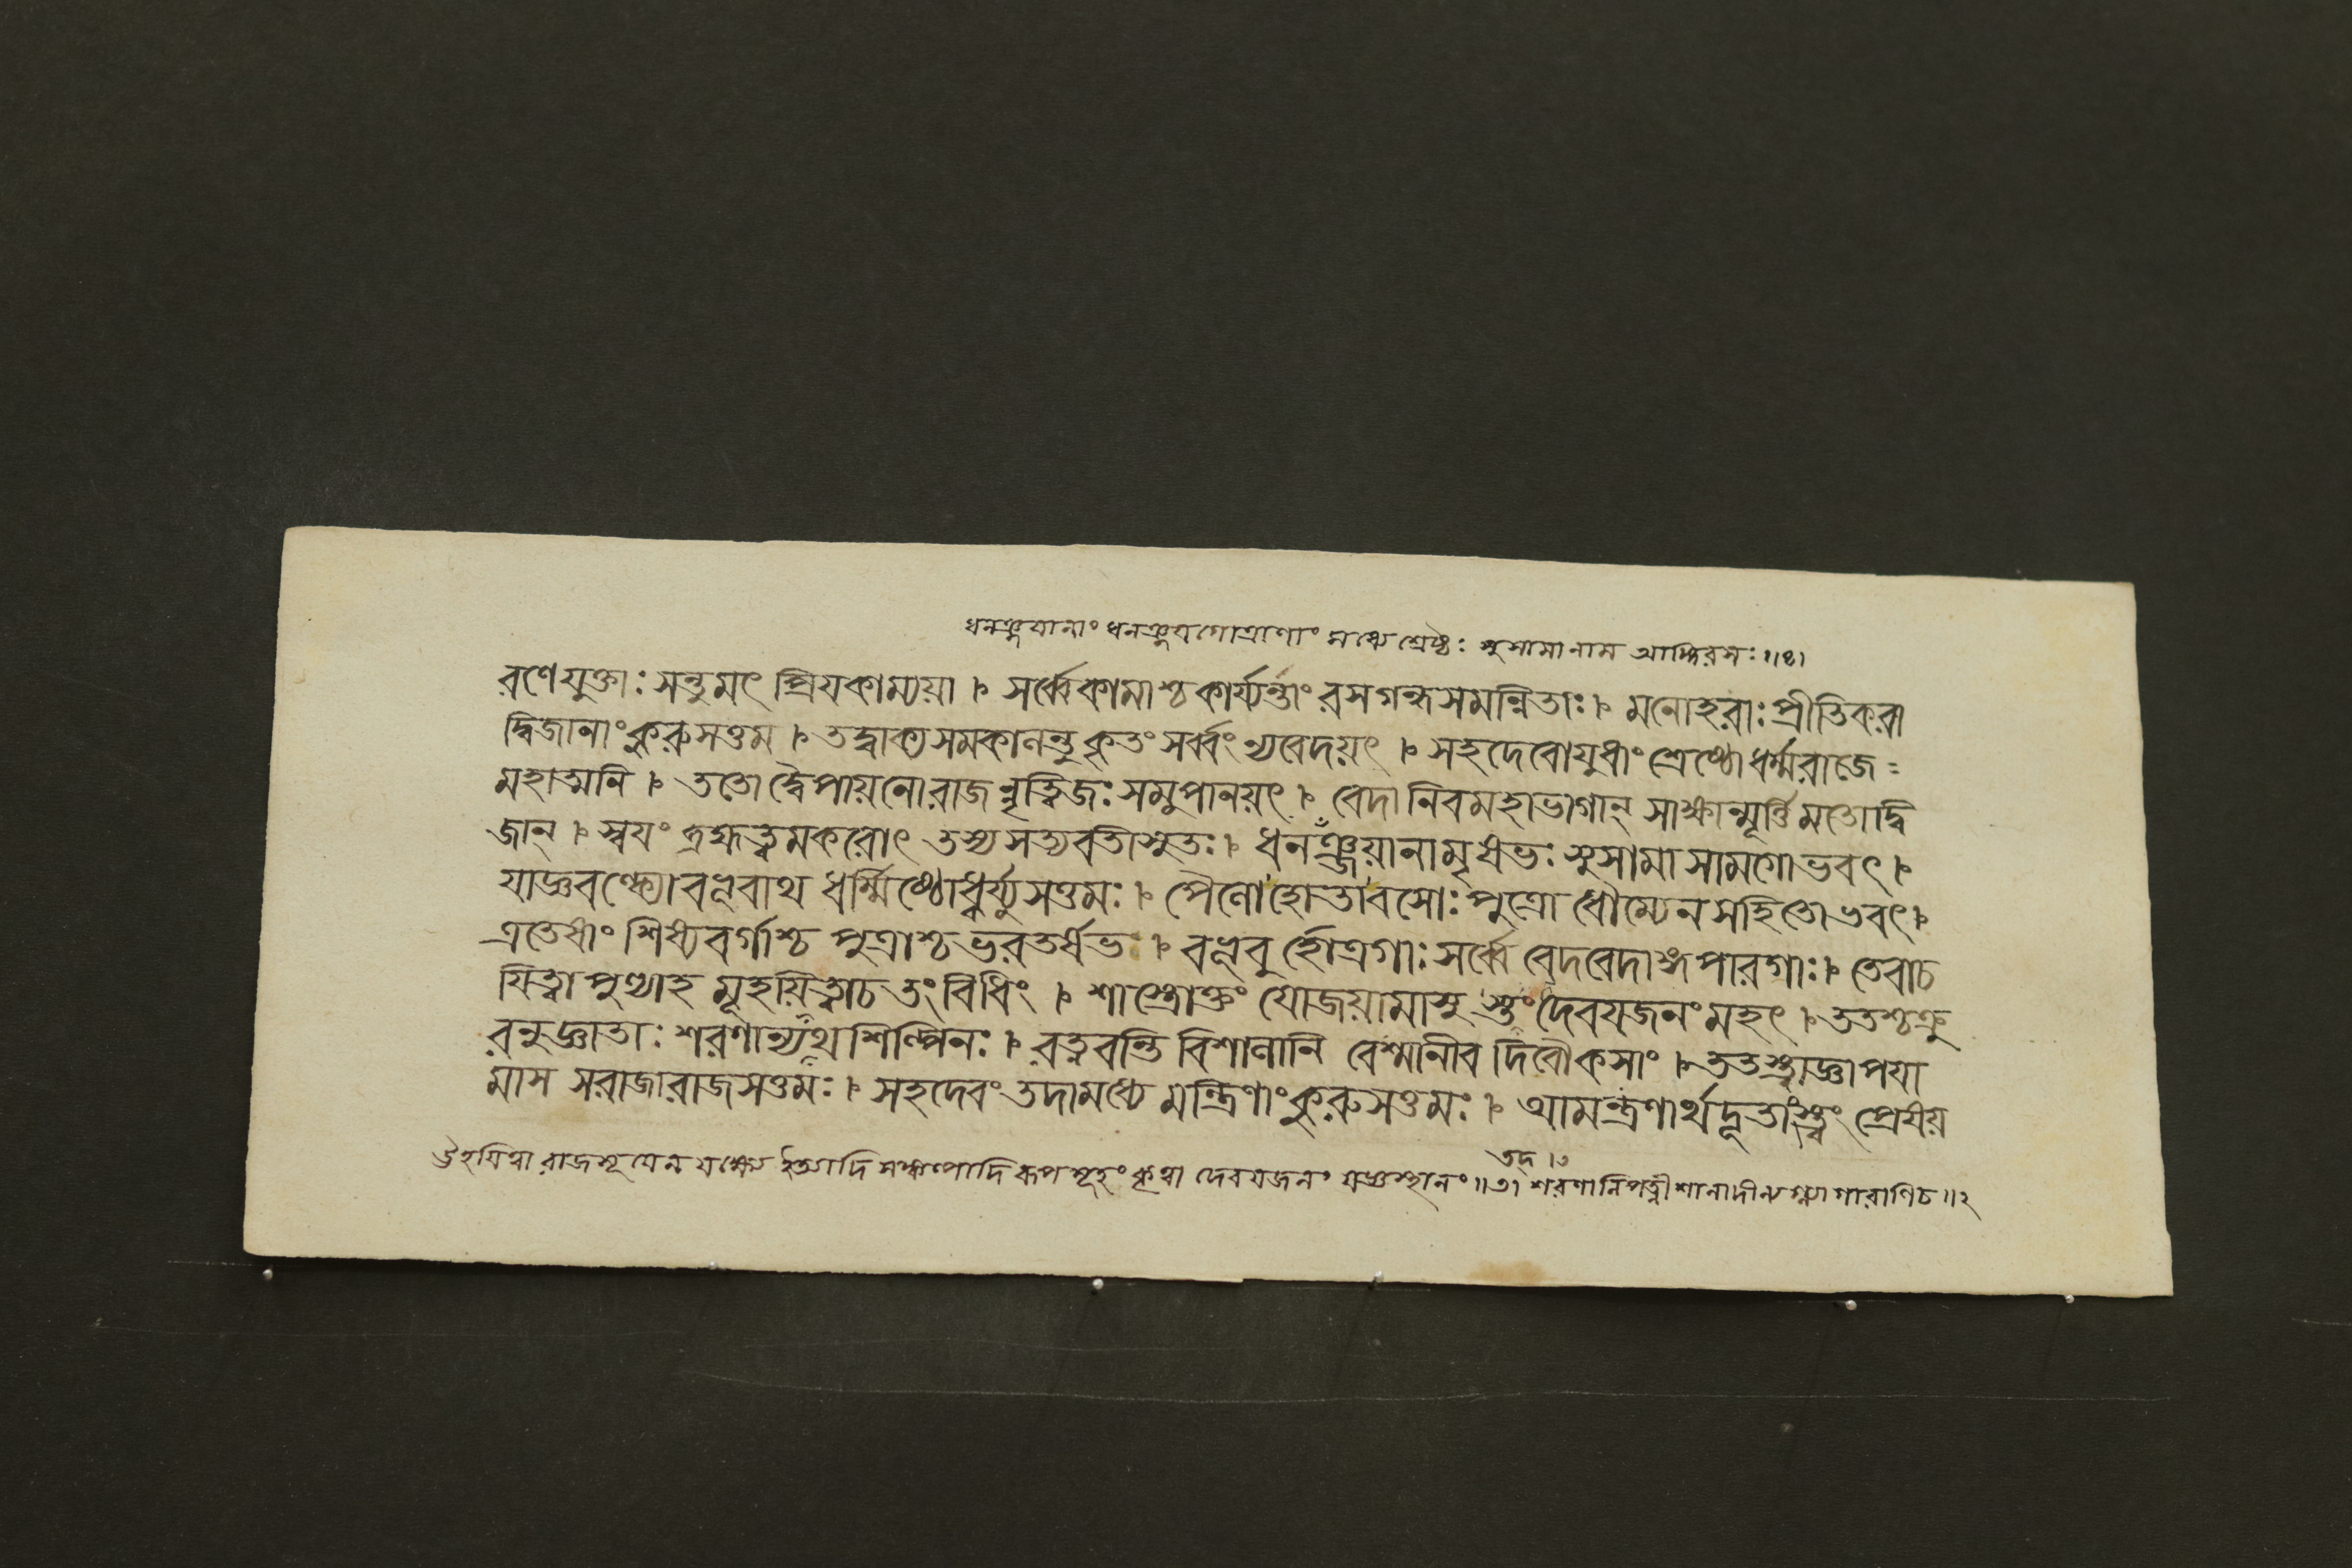 ধনঞ্জয়ানাং ধনঞ্জয়গোত্রাণাং মধ্যে শ্রেষ্ঠঃ সুসামানাম আঙ্গিরসঃ॥১।
রণে যুক্তাঃ সন্তু মৎ প্রিয়কাম্যয়া । সর্ব্বেকামাশ্চকার্য্যন্তাং রসগন্ধসমন্বিতাঃ । মনোহরাঃ প্রীতিকরা
দ্বিজানাং কুরুসত্তম । তদ্বাক্যসমকালন্তু কৃতং সর্ব্বং ন্যবেদয়ৎ । সহদেবোযুধাং শ্রেষ্ঠো ধর্ম্মরাজে=
মহাত্মনি । ততো দ্বৈপায়নোরাজন্নৃত্বিজঃ সমুপানয়ৎ । বেদানিবমহাভাগান্ সাক্ষান্মূর্ত্তিমতোদ্বি
জান্ । স্বয়ং ব্রহ্মত্বমকরোৎ তস্য সত্যবতীসুতঃ । ধনঞ্জয়ানামৃষভঃ সুসামা সামগোভবৎ ।
যাজ্ঞবল্ক্যোবভূবাথ ধর্ম্মিষ্ঠোধ্বর্য্যুসত্তমঃ । পৈলোহোতাবসোঃ পুত্রো ধৌম্যেন সহিতোভবৎ ।
এতেষাং শিষ্যবর্গাশ্চ পুত্রাশ্চ ভরতর্ষভ । বভূবুর্হোত্রগাঃ সর্ব্বে বেদবেদাঙ্গপারগাঃ । তেবাচ
য়িত্বা পুণ্যাহমূহয়িত্বাচ তং বিধিং । শাস্ত্রোক্তং যোজয়ামাসুস্তং দেবযজনং মহৎ । ততশ্চক্রু
রনুজ্ঞাতাঃ শরণান্যথ শিল্পিনঃ । রত্নবন্তি বিশালানি বেশ্মানীব দিবৌকসাং । ততআজ্ঞাপয়া
মাস সরাজারাজসত্তমঃ । সহদেবং তদামধ্যে মন্ত্রিণাং কুরুসত্তমঃ । আমন্ত্রণার্থদূতাংস্ত্বং প্রেষয়
তদ্।৩
ঊহয়িত্বা রাজসূয়েন যক্ষ্যে ইত্যাদি সঙ্কল্পাদিরূপমূহং কৃত্বা দেবযজনং যজ্ঞস্থানং॥৩। শরণানিপত্নীশালাদীন্যগ্ন্যাগারাণিচ॥২